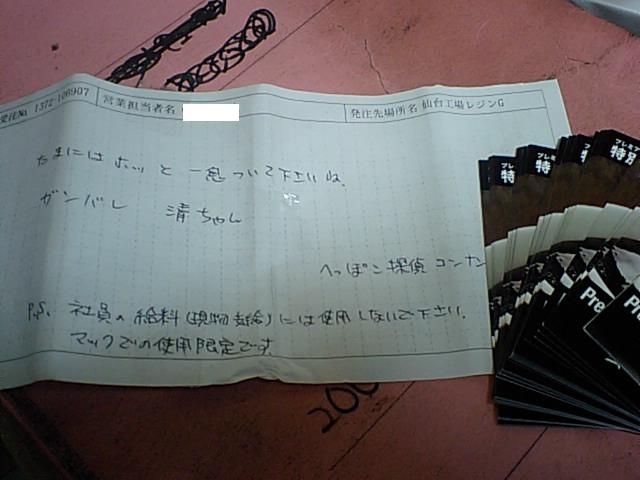 受注No. 1372-106907 営業担当者名 発注先場所名 仙台工場レジンG
たまにはホッと一息ついて下さいね。
ガンバレ 清ちゃん
へっぽこ探偵コナン
P.S. 社員の給料(現物支給)には使用しないで下さい。
マックでの使用限定です。
プレミア
特別
プレミア
特
プレミア
特別
プレミ
特別
Pre
Pre
200